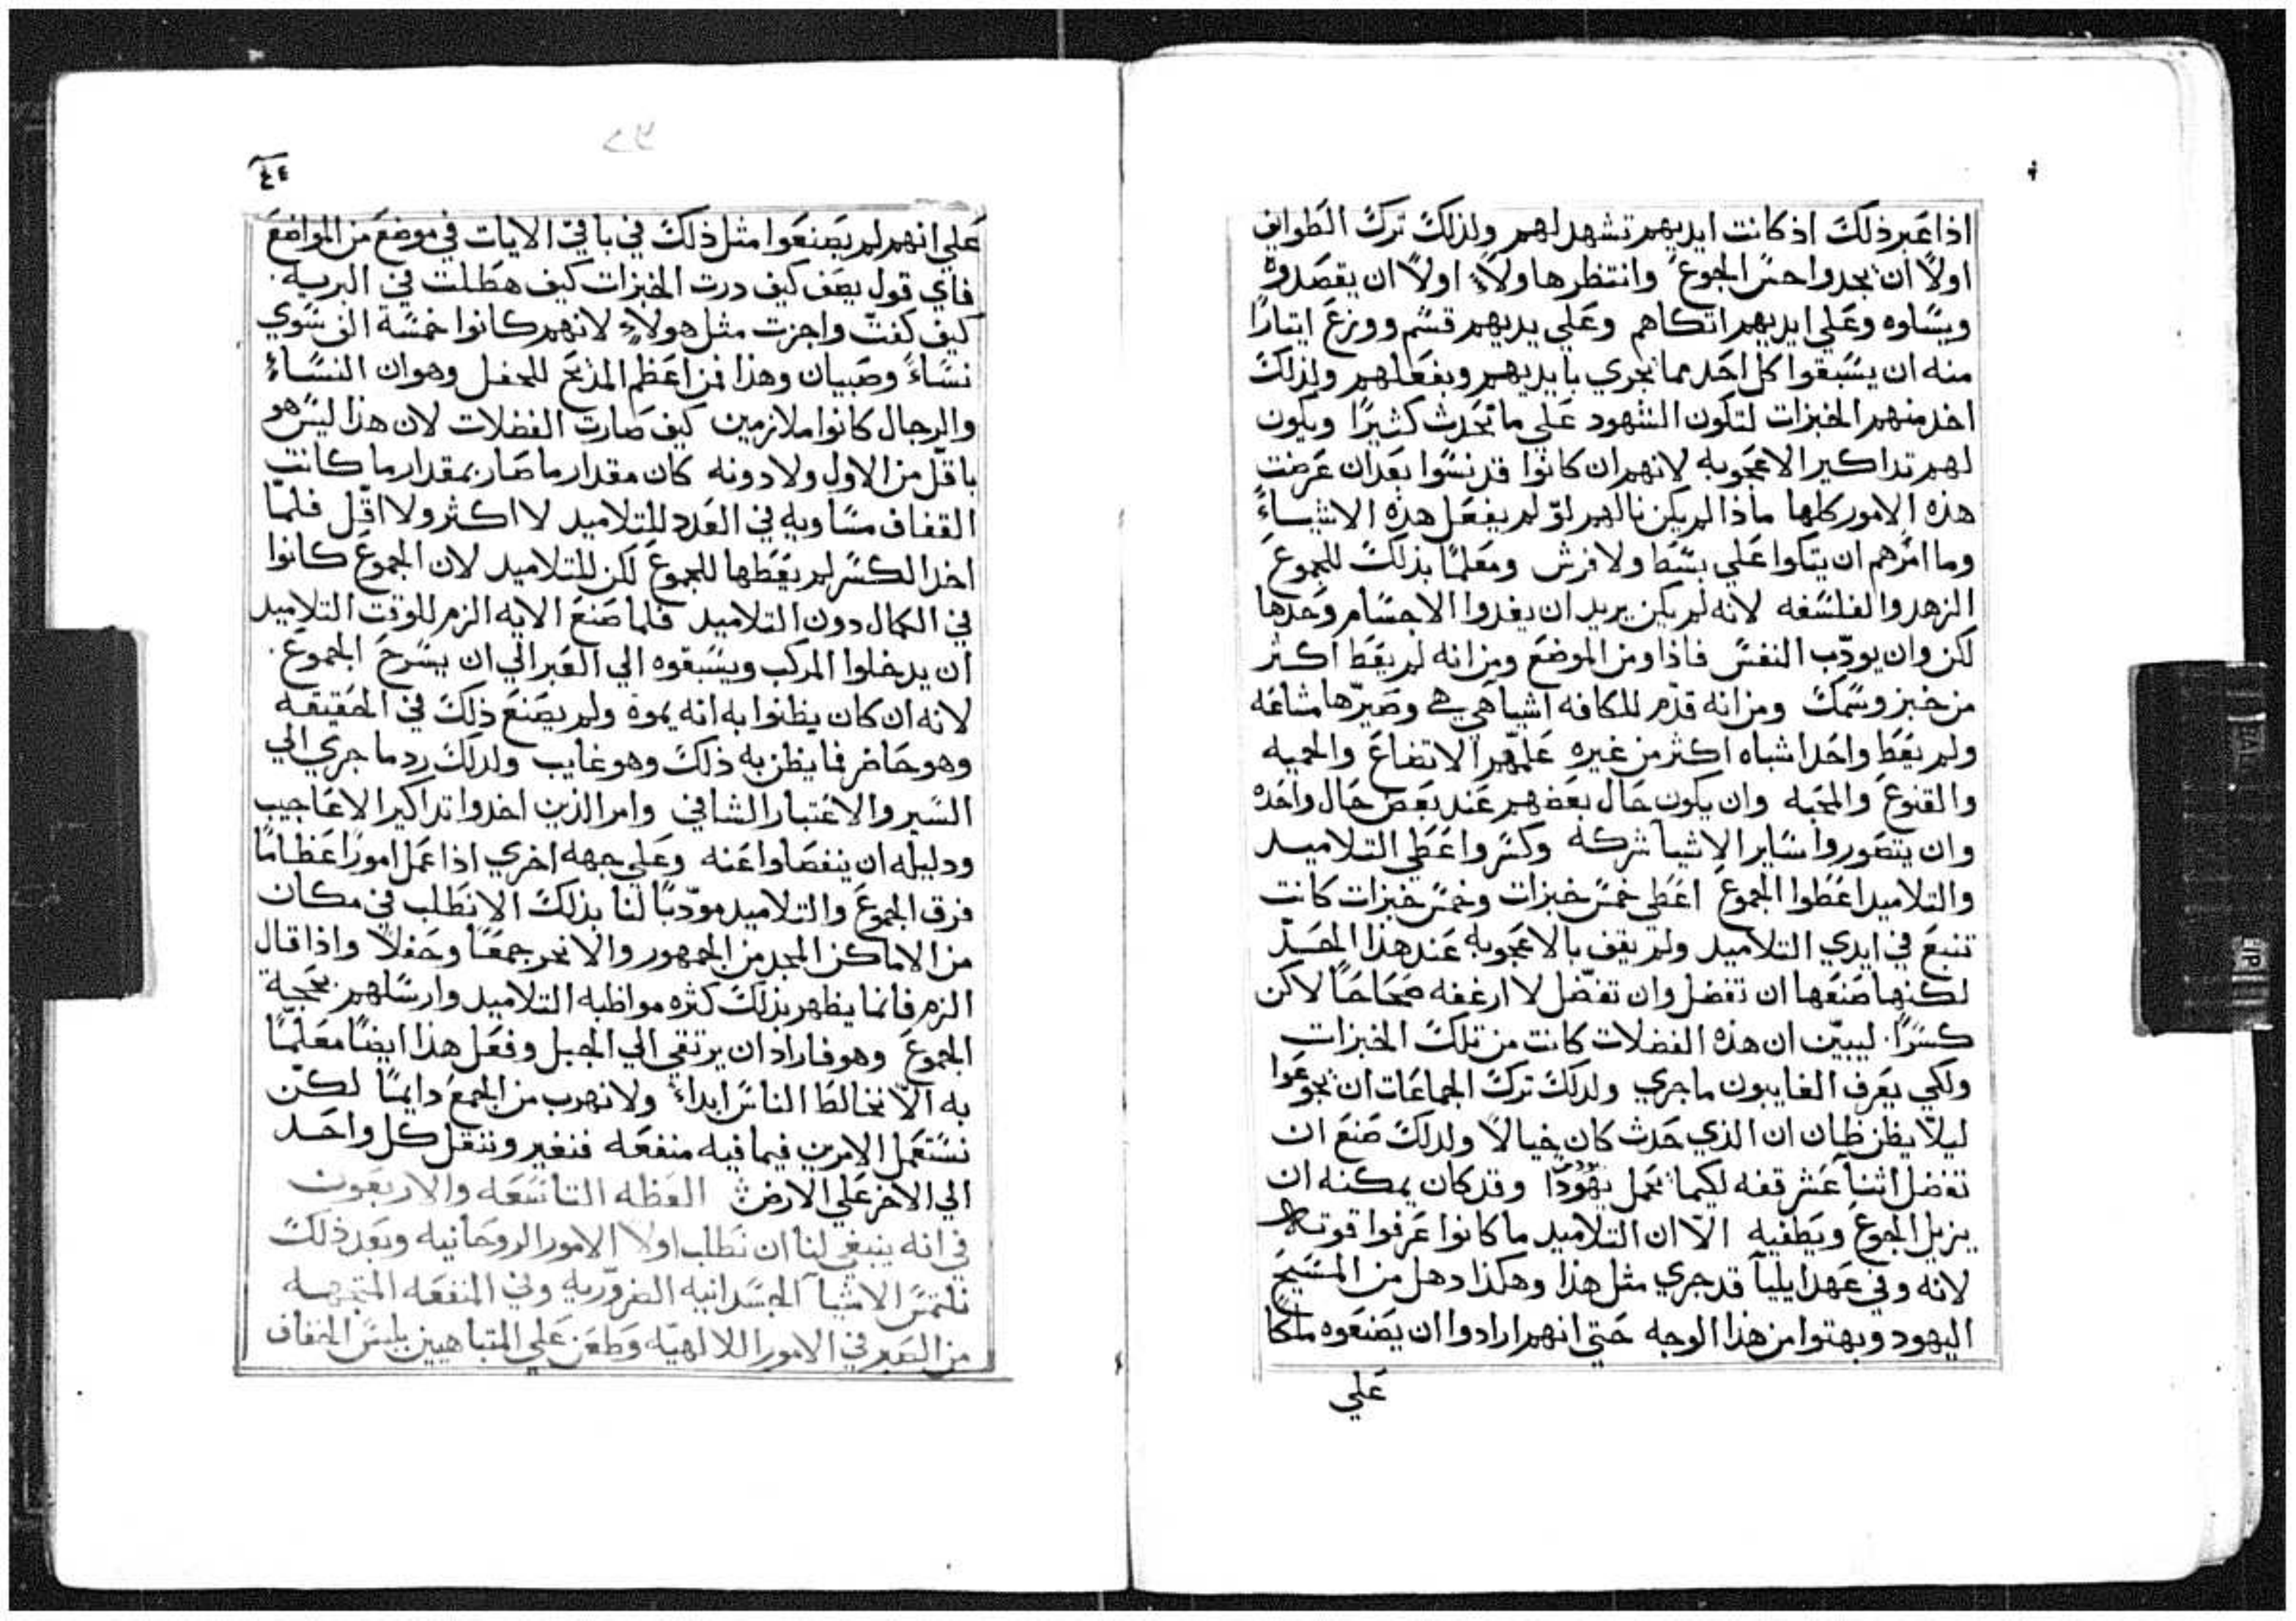 اذا عبر ذلك اذ كانت ايديهم تشهد لهم ولذلك ترك الطوايف
اولاً ان يجدوا حس الجوع وانتظر هاولاء اولاً ان يقصدوه
ويساوه وعلي ايديهم اتكاهم وعلي يديهم قسم ووزع ايتارًا
منه ان يسبقوا كل احد مما يجري بايديهم وبفعلهم ولذلك
اخد منهم الخبزات لتكون الشهود علي ما يحدث كثيرًا ويكون
لهم تداكير الاعجوبه لانهم ان كانوا قد نسوا بعد ان عرضت
هذه الامور كلها ماذا لم يكن نالهم لو لم يفعل هذه الاشياء
وما امرهم ان يتكوا علي بسط ولا فرش ومعلمًا بذلك للجموع
الزهد والفلسفه لانه لم يكن يريد ان يغدوا الاجسام وحدها
لكن وان يودّب النفس فاذا ومن الموضع ومن انه لم يعط اكثر
من خبز وسمك ومن انه قدّم للكافه اشيا هي هي وصيّرها مشاعه
ولم يعط واحدا شياه اكثر من غيره علمهم الاتضاع والحميه
والقنوع والمحبه وان يكون حال بعضهم عند بعض حال واحده
وان يتصوروا ساير الاشيا شركه وكسر واعطي التلاميد
والتلاميد اعطوا الجموع اعطي خمس خبزات وخمس خبزات كانت
تنبع في ايدي التلاميد ولم يقف بالاعجوبه عند هذا الحدّ
لكنها صنعها ان تفضل وان تفضّل لا ارغفه صحاحًا لاكن
كسرًا. ليبيّن ان هذه الفضلات كانت من تلك الخبزات
ولكي يعرف الغايبون ما جري ولدلك ترك الجماعات ان يجوعوا
ليلاّ يظن ظان ان الذي حدث كان خيالاً ولدلك صنع ان
تفضل اثنا عشر قفه لكيما يحمل يهودا وقد كان يمكنه ان
يزيل الجوع ويطفيه الاّ ان التلاميد ما كانوا عرفوا قوته
لانه وفي عهد ايليا قد جري مثل هذا وهكذا دهل من المسيح
اليهود وبهتوا من هذا الوجه حتي انهم ارادوا ان يصنعوه ملكًا
علي
٤٤
علي انهم لم يصنعوا مثل ذلك في باقي الايات في موضع من المواضع
فاي قول يصف كيف درت الخبزات كيف هطلت في البريه.
كيف كفت واجزت مثل هولاء لانهم كانوا خمسة الف سوي
نساء وصبيان وهذا فمن اعظم المذبح للحفل وهو ان النساء
والرجال كانوا ملازمين كيف صارت الفضلات لان هذا ليس هو
باقل من الاول ولا دونه كان مقدار ما صار بمقدار ما كانت
القفاف مساويه في العدد للتلاميد لا اكثر ولا اقل فلمّا
اخد الكسر لم يعطها للجموع لكن للتلاميد لان الجموع كانوا
في الكمال دون التلاميد فلما صنع الايه الزم للوقت التلاميد
ان يدخلوا المركب ويسبقوه الي العبر الي ان يسرح الجموع.
لانه ان كان يظنوا به انه يموه ولم يصنع ذلك في الحقيقه
وهو حاضر فما يظن به ذلك وهو غايب ولدلك رد ما جري الي
السير والاعتبار الشافي وامر الذين اخدوا تداكير الاعاجيب
ودليله ان ينفصلوا عنه وعلي جهه اخري اذا عمل امورًا عظامًا
فرق الجموع والتلاميد مودّبًا لنا بذلك الا نطلب في مكان
من الاماكن المجد من الجمهور والا نجر جمعًا وحفلاً واذا قال
الزم فانما يظهر بذلك كثره مواظبه التلاميد وارسلهم بحجة
الجموع وهو فاراد ان يرتقي الي الجبل وفعل هذا ايضًا معلّمًا
به الاّ نخالط الناس ابداء ولا نهرب من الجمع دايمًا لكن
نستعمل الامرين فيما فيه منفعه فنغير وننتقل كل واحد
الي الاخر علي الارض العظه التاسعه والاربعون
في انه ينبغي لنا ان نطلب اولا الامور الروحانيه وبعد ذلك
نلتمس الاشيا الجسدانيه الضروّريه وفي المنفعه المتجهه
من الصبر في الامور اللالهيّه وطعن علي المتباهيين بلبس الخفاف